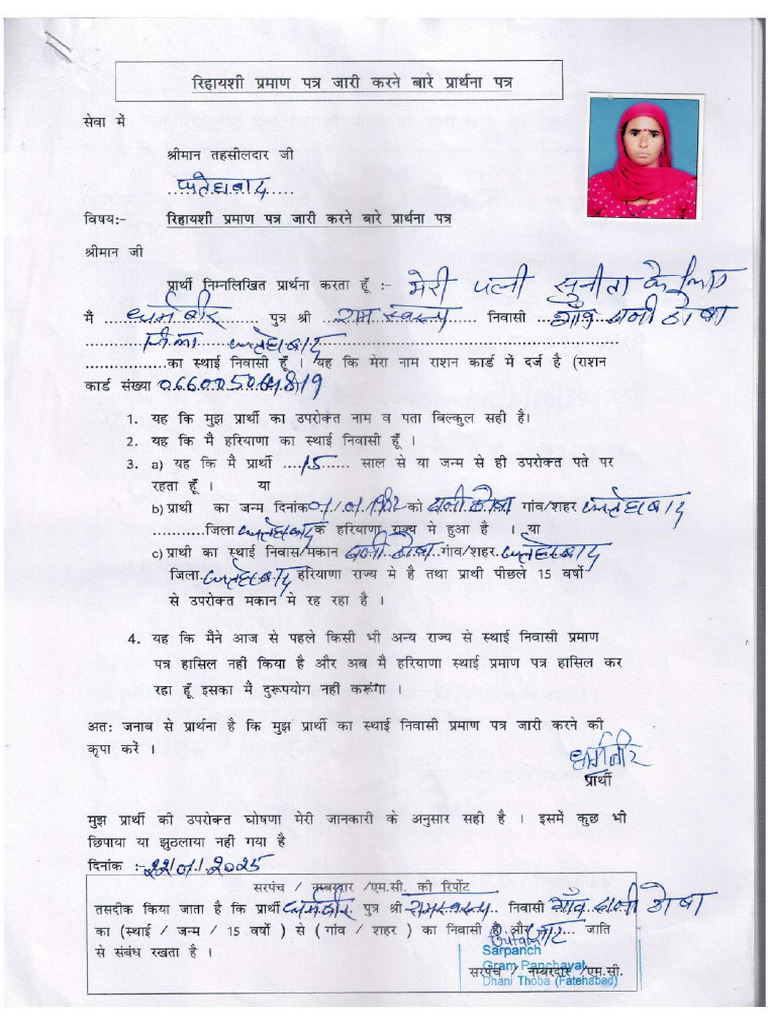 रिहायशी प्रमाण पत्र जारी करने बारे प्रार्थना पत्र
सेवा में
श्रीमान तहसीलदार जी
फतेहाबाद
विषय:- रिहायशी प्रमाण पत्र जारी करने बारे प्रार्थना पत्र
श्रीमान जी
प्रार्थी निम्नलिखित प्रार्थना करता हूँ :- मेरी पत्नी सुनीता के लिए
मै धर्मबीर पुत्र श्री राम स्वरूप निवासी गाँव ढाणी ठोबा
जिला फतेहाबाद
का स्थाई निवासी हूँ । यह कि मेरा नाम राशन कार्ड में दर्ज है (राशन
कार्ड संख्या 066005064819
1. यह कि मुझ प्रार्थी का उपरोक्त नाम व पता बिल्कुल सही है।
2. यह कि मै हरियाणा का स्थाई निवासी हूँ ।
3. a) यह कि मै प्रार्थी ....15...... साल से या जन्म से ही उपरोक्त पते पर
रहता हूँ । या
b) प्रार्थी का जन्म दिनांक को ढाणी ठोबा गांव/शहर फतेहाबाद
...........जिला फतेहाबाद के हरियाणा राज्य मे हुआ है । या
c) प्रार्थी का स्थाई निवास/मकान ढाणी ठोबा गांव/शहर फतेहाबाद
जिला फतेहाबाद हरियाणा राज्य मे है तथा प्रार्थी पीछले 15 वर्षो
से उपरोक्त मकान मे रह रहा है ।
4. यह कि मैने आज से पहले किसी भी अन्य राज्य से स्थाई निवासी प्रमाण
पत्र हासिल नहीं किया है और अब मै हरियाणा स्थाई प्रमाण पत्र हासिल कर
रहा हूँ इसका मै दुरूपयोग नहीं करूंगा ।
अत: जनाब से प्रार्थना है कि मुझ प्रार्थी का स्थाई निवासी प्रमाण पत्र जारी करने की
कृपा करें ।
धर्मबीर
प्रार्थी
मुझ प्रार्थी की उपरोक्त घोषणा मेरी जानकारी के अनुसार सही है । इसमें कुछ भी
छिपाया या झुठलाया नही गया है
दिनांक :- 22/01/2025
सरपंच / नम्बरदार /एम.सी. की रिर्पोट
तसदीक किया जाता है कि प्रार्थी धर्मबीर पुत्र श्री रामस्वरूप निवासी गाँव ढाणी ठोबा
का (स्थाई / जन्म / 15 वर्षो ) से ( गांव / शहर ) का निवासी है और जाट जाति
से संबंध रखता है ।
Sarpanch
Gram Panchayat
सरपंच / नम्बरदार/एम.सी.
Dhani Thoba (Fatehabad)